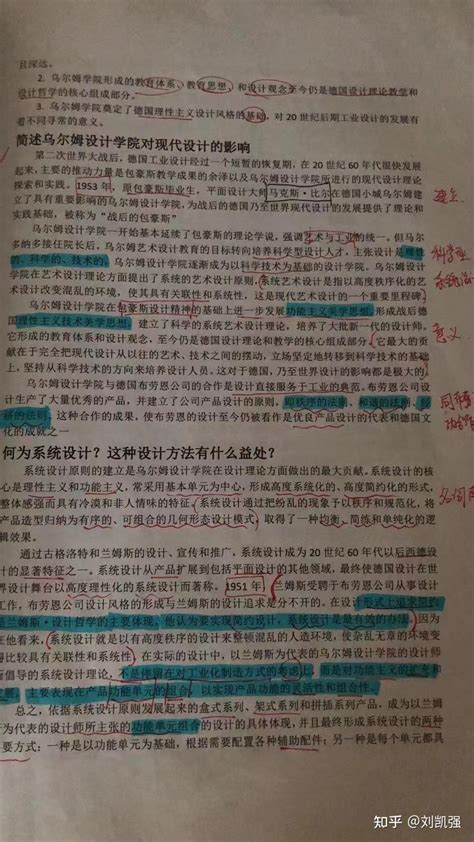 且深远。
2. 乌尔姆学院形成的教育体系、教育思想、和设计观念至今仍是德国设计理论教学和
设计哲学的核心组成部分。
3. 乌尔姆学院奠定了德国理性主义设计风格的基础，对 20 世纪后期工业设计的发展有
着不同寻常的意义。
简述乌尔姆设计学院对现代设计的影响
第二次世界大战后，德国工业设计经过一个短暂的恢复期，在 20 世纪 60 年代很快发展
起来，主要的推动力量是包豪斯教学成果的余泽以及乌尔姆设计学院所进行的现代设计理论
探索和实践。1953 年，原包豪斯毕业生，平面设计大师马克斯·比尔在德国小城乌尔姆建立
了具有重要影响的乌尔姆设计学院，为战后的德国乃至世界现代设计的发展提供了理论和
实践基础，被称为“战后的包豪斯”
乌尔姆设计学院一开始基本延续了包豪斯的理论学说，强调艺术与工业的统一。但马尔
多纳多接任院长后，乌尔姆艺术设计教育的目标转向培养科学型设计人才，主张设计是理性
的、科学的、技术的。乌尔姆设计学院逐渐成为以科学技术为基础的设计学院。乌尔姆设计
学院在艺术设计理论方面提出了系统的艺术设计原则，系统艺术设计是指以高度秩序化的艺
术设计改变混乱的环境，使其具有关联性和系统性，这是现代艺术设计的一个重要里程碑
乌尔姆设计学院在包豪斯设计精神的基础上进一步发展功能主义美学思想，形成战后德
国理性主义技术美学思想，建立了科学的系统艺术设计理论，培养了大批新一代的设计师。
它形成的教育体系和设计观念，至今仍是德国设计理论和教学的核心组成部分，它最大的贡
献在于完全把现代设计从以往的艺术、技术之间的摆动，立场坚定地转移到科学技术的基础
上，坚持从科学技术的方向来培养设计人员。这对于德国，乃至世界设计的影响都是极大的
乌尔姆设计学院与德国布劳恩公司的合作是设计直接服务于工业的典范。布劳恩公司设
计生产了大量优秀的产品，并建立了公司产品设计的原则，即秩序的法则、和谐的法则、经
济的法则，这种合作的成果，使布劳恩的设计至今仍被看作是优良产品设计的代表和德国文
化的成就之一
何为系统设计？这种设计方法有什么益处？
系统设计原则的建立是乌尔姆设计学院在设计理论方面做出的最大贡献。系统设计的核
心是理性主义和功能主义，常采用基本单元为中心，形成高度系统化的、高度简约化的形式，
整体感强而具有冷漠和非人情味的特征。系统设计通过把纷乱的现象予以秩序和规范化，将
产品造型归纳为有序的、可组合的几何形态设计模式，取得了一种均衡、简练和单纯化的逻
辑效果。
通过古格洛特和兰姆斯的设计、宣传和推广，系统设计成为 20 世纪 60 年代以后西德设
计的显著特征之一。系统设计从产品扩展到包括平面设计的其他领域，最终使德国设计在世
界设计舞台以高度理性化的系统设计而著称。1951 年，兰姆斯受聘于布劳恩公司从事设计
工作，布劳恩公司设计风格的形成与兰姆斯的设计追求是分不开的。在设计形式上追求简约
是兰姆斯·设计哲学的主要体现。他认为要实现简约设计，系统设计是最有效的办法，因为
在他看来，系统设计就是以有高度秩序的设计来整顿混乱的人造环境，使杂乱无章的环境变
得比较具有关联性和系统性。在实际的设计中，以兰姆斯为代表的乌尔姆设计学院的设计师
倡导的系统设计理论，不是停留在对工业化制造方式的考虑上，而是对功能主义的扩充和
发展，主要表现在产品功能单元的组合，以实现产品功能的灵活性和组合性。
总之，依据系统设计原则发展起来的盒式系列、架式系列和拼插系列产品，成为以兰姆
斯为代表的设计师所主张的功能单元组合的设计的具体体现，并且最终形成系统设计的两种
主要方式：一种是以功能单元为基础，根据需要配置各种辅助配件；另一种是每个单元都具
建立
科学型
意义
知乎 @刘凯强